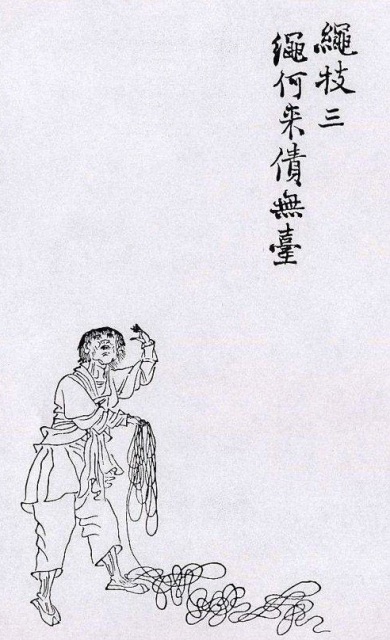 繩技三
繩何来債無臺